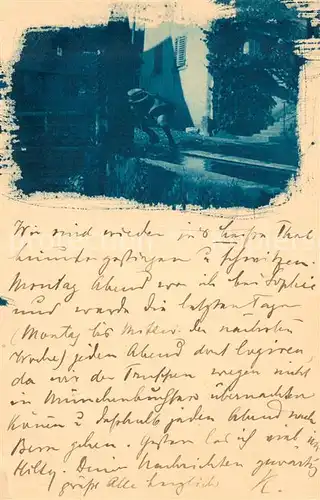 Wir sind wieder in's heisse Thal
hinunter gestiegen u. schwitzen.
Montag Abend war ich bei Sophie
und werde die letzten Tage
(Montag bis Mittw. der nächsten
Woche) jeden Abend dort logieren,
da wir der wegen nicht
in Münchenbuchsee übernachten
können u. deshalb jeden Abend nach
Bern gehen. Gestern las ich viel in
Hilty. Deine Nachrichten gewärtig
grüsst Alle herzlich K.